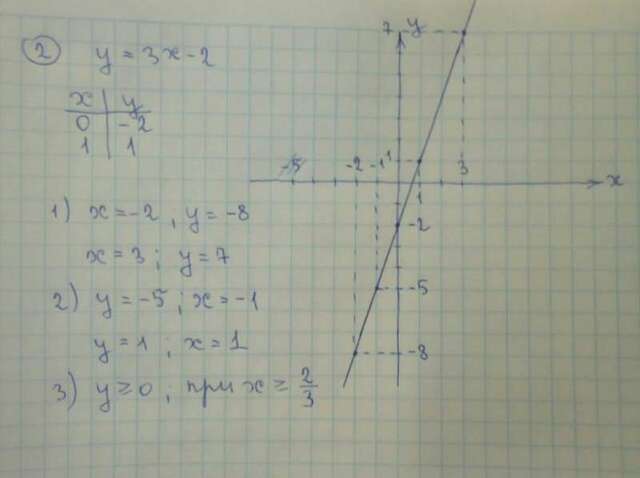 2 y = 3x - 2
x y
0 -2
1 1
1) x = -2 , y = -8
x = 3 ; y = 7
2) y = -5 ; x = -1
y = 1 ; x = 1
3) y ≥ 0 ; при x ≥ 2/3
7 y
-5 -2 -1 1 3 x
1
-2
-5
-8